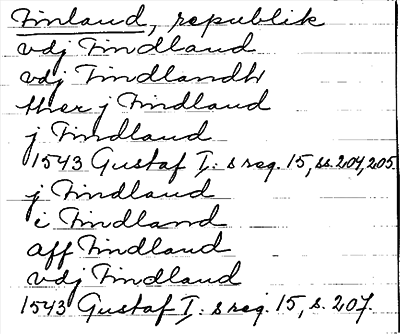 Finland, republik
vdj Findland
vdj Findlandh
ther j Findland
j Findland
1543 Gustaf I: s reg. 15, ss. 204, 205.
j Findland
i Findland
aff Findland
vdj Findland
1543 Gustaf I: s reg. 15, s. 207.